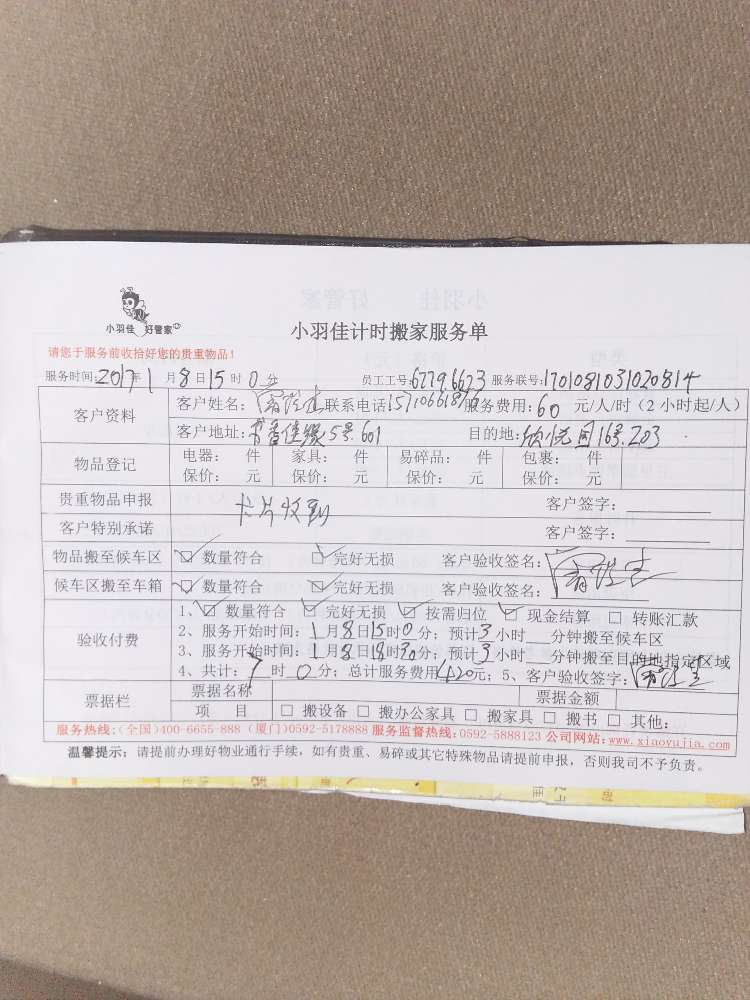 小羽佳 好管家
小羽佳计时搬家服务单
请您于服务前收拾好您的贵重物品！
服务时间：2017年1月8日15时0分 员工工号：6779.6623 服务联号：1701081031020814
客户资料
客户姓名： 联系电话 服务费用：60 元/人/时（2小时起/人）
客户地址： 5号.601 目的地：欣悦园16号.203
物品登记
电器： 件 家具： 件 易碎品： 件 包裹： 件
保价： 元 保价： 元 保价： 元 保价： 元
贵重物品申报 卡片收到 客户签字：
客户特别承诺 客户签字：
物品搬至候车区 ☑ 数量符合 ☑ 完好无损 客户验收签名：
候车区搬至车箱 ☑ 数量符合 ☑ 完好无损 客户验收签名：
验收付费
1、☑ 数量符合 ☑ 完好无损 ☑ 按需归位 ☑ 现金结算 □ 转账汇款
2、服务开始时间：1月8日15时0分；预计3小时 分钟搬至候车区
3、服务开始时间：1月8日18时30分；预计3小时 分钟搬至目的地指定区域
4、共计：7时0分；总计服务费用420元；5、客户验收签字：
票据栏 票据名称 票据金额
项 目 □ 搬设备 □ 搬办公家具 □ 搬家具 □ 搬书 □ 其他：
服务热线：(全国)400-6655-888 (厦门)0592-5178888 服务监督热线：0592-5888123 公司网站：www.xiaoyujia.com
温馨提示：请提前办理好物业通行手续，如有贵重、易碎或其它特殊物品请提前申报，否则我司不予负责。